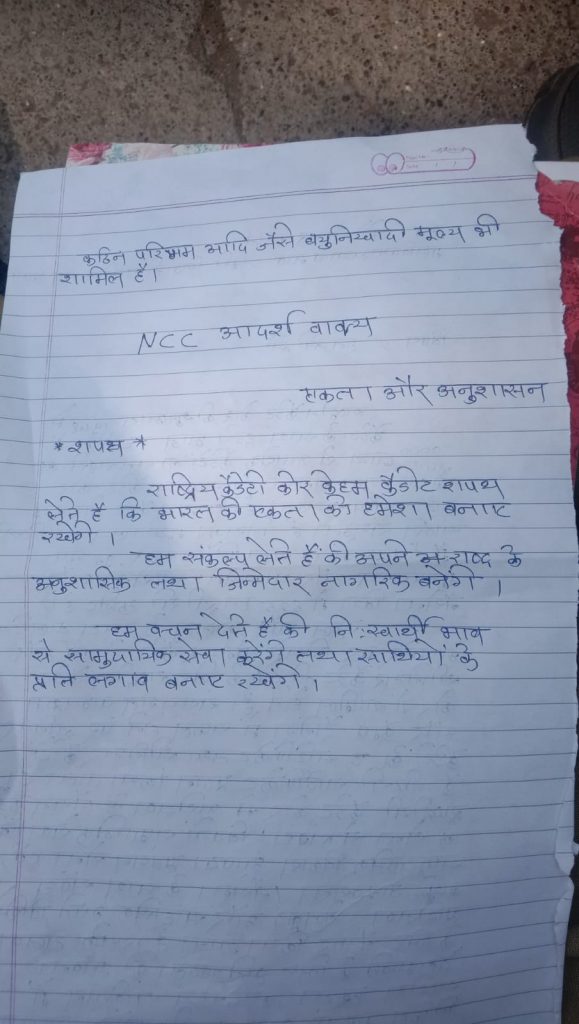 कठिन परिश्रम आदि जैसे बयुनियादी मूल्य भी
शामिल हैं।
NCC आदर्श वाक्य
एकता और अनुशासन
* शपथ *
राष्ट्रिय कैडेटो कोर के हम कैडेट शपथ
लेते है कि भारत की एकता को हमेशा बनाए
रखेंगे।
हम संकल्प लेते हैं की अपने राष्ट्र के
अनुशासिक तथा जिम्मेदार नागरिक बनेंगे।
हम वचन देते है की नि:स्वार्थी भाव
से सामुदायिक सेवा करेंगे तथा साथियों के
प्रति लगाव बनाए रखेंगे।